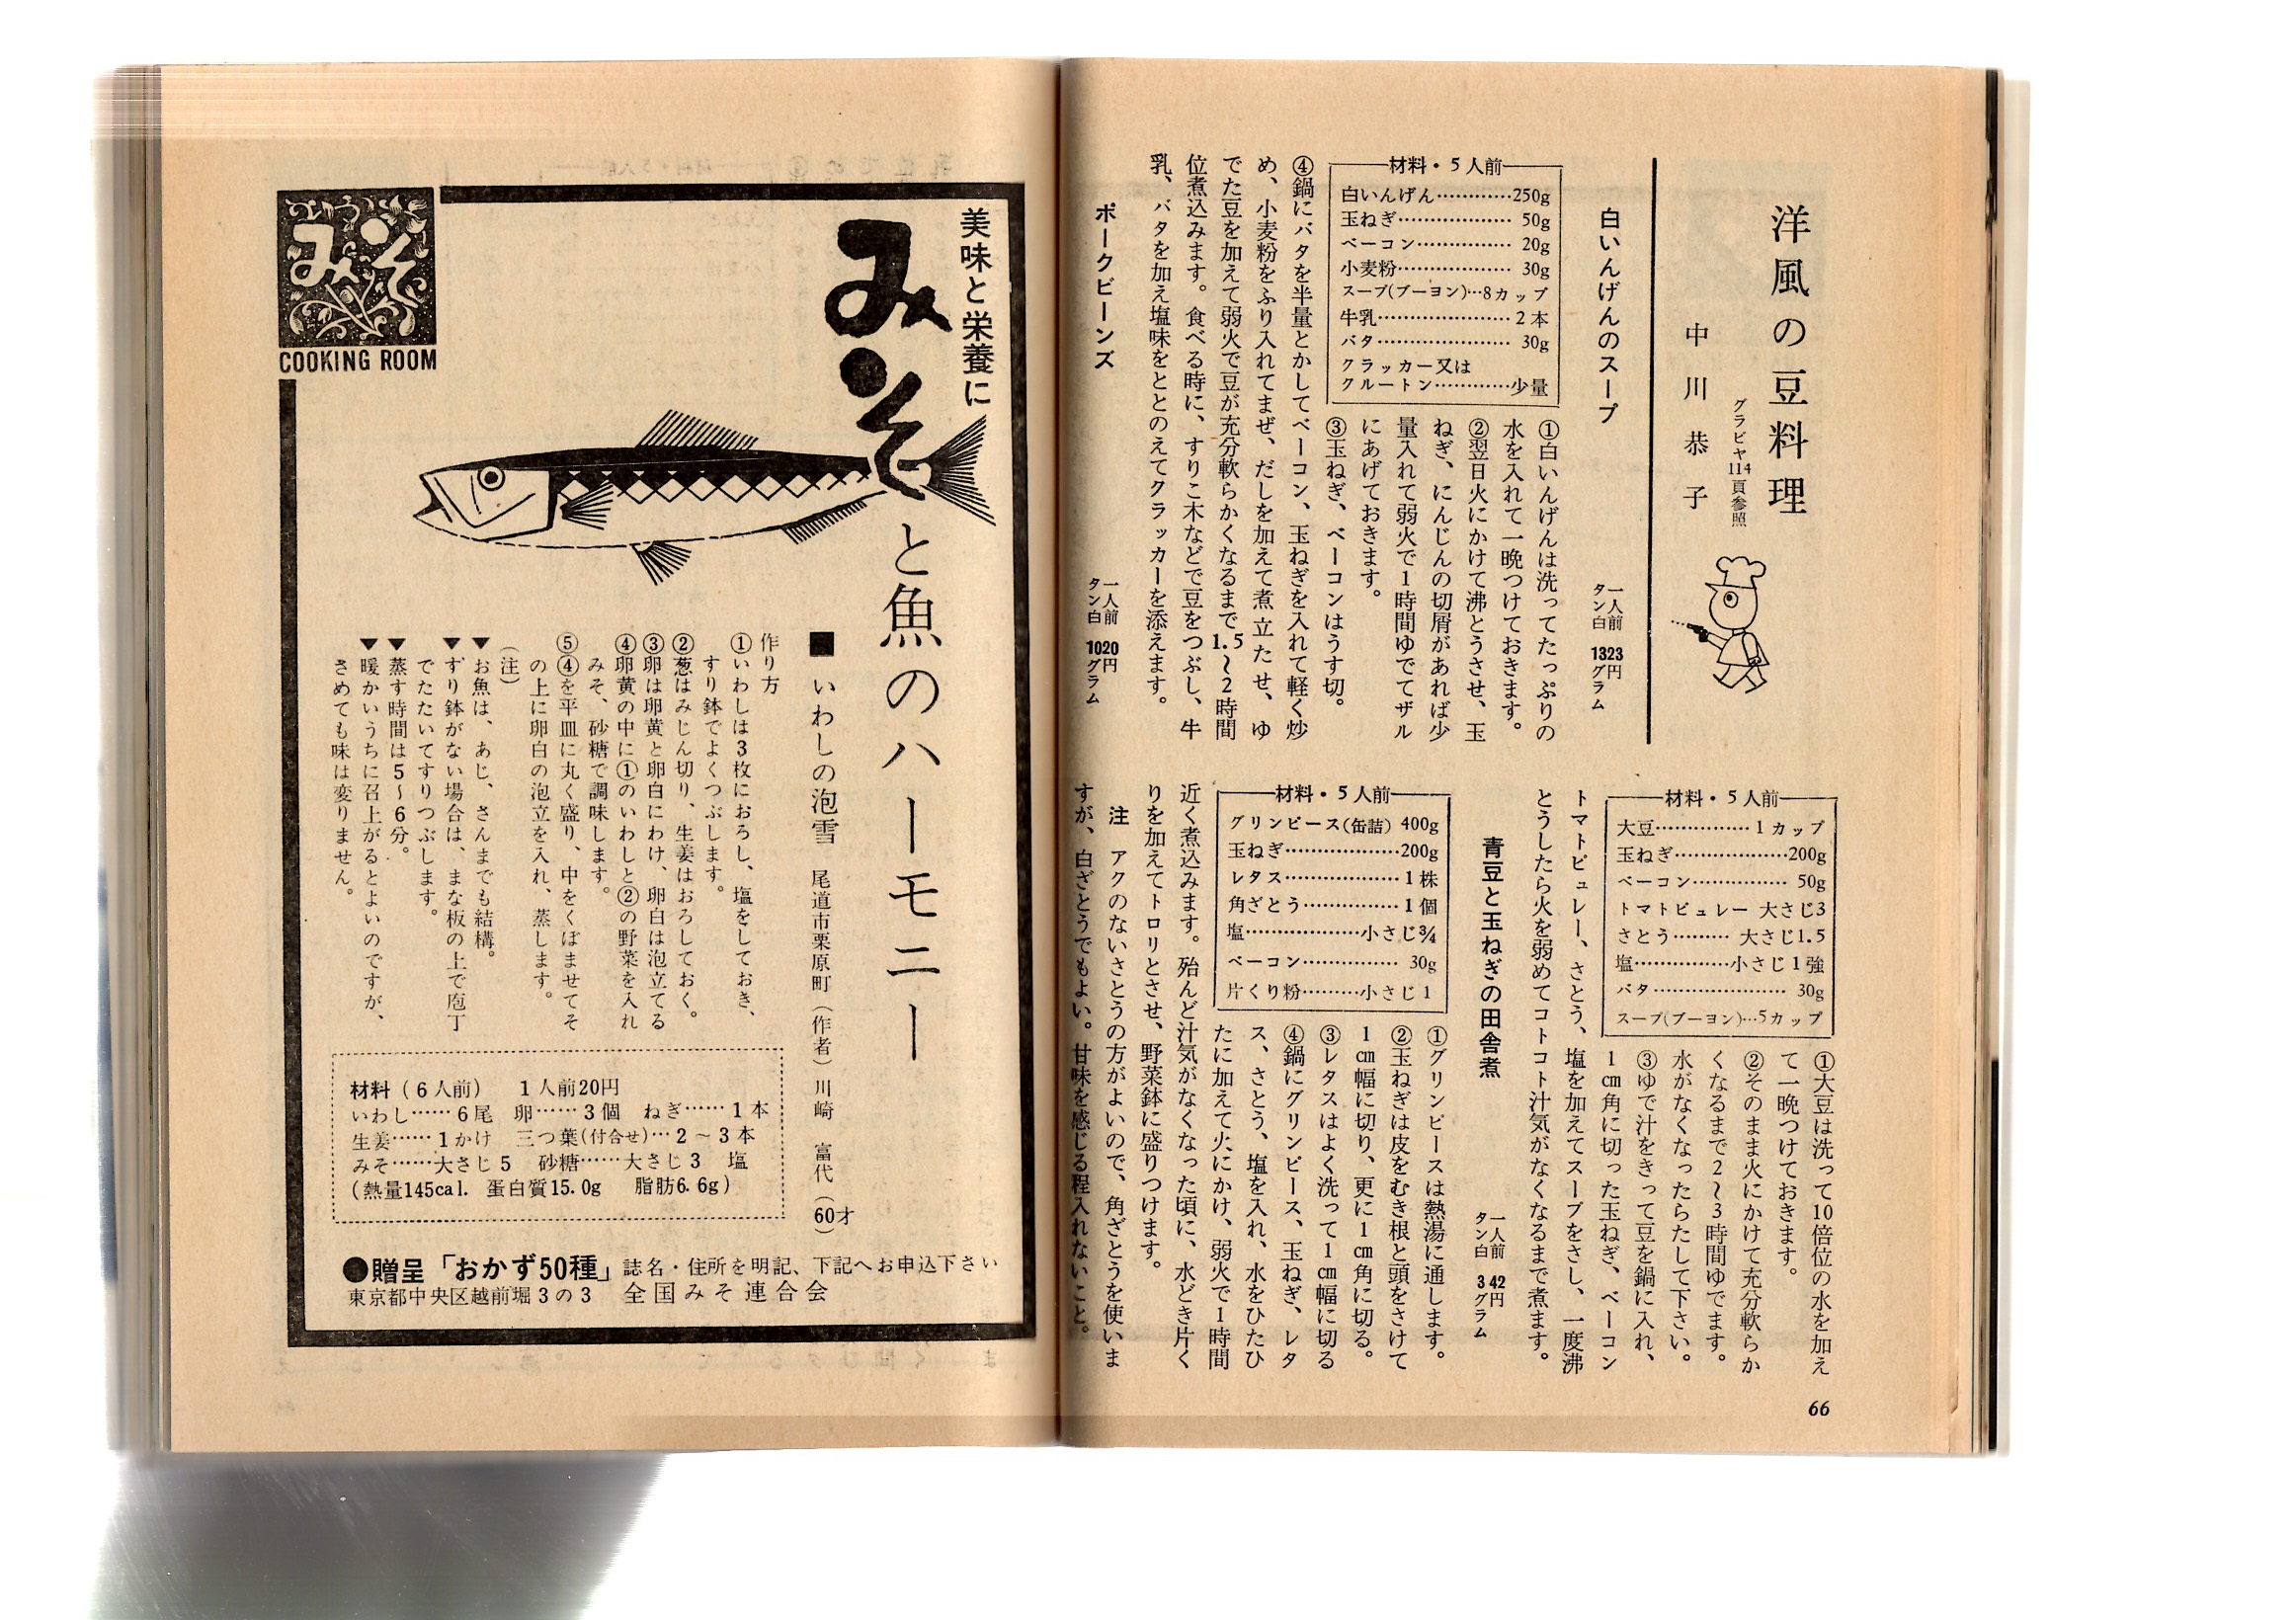 洋風の豆料理
グラビヤ114頁参照
中川恭子
白いんげんのスープ
一人前 23円
タン白 13グラム
材料・5人前
白いんげん…………250g
玉ねぎ………………50g
ベーコン……………20g
小麦粉………………30g
スープ(ブーヨン)…8カップ
牛乳…………………2本
バタ…………………30g
クラッカー又は
クルートン…………少量
①白いんげんは洗ってたっぷりの
水を入れて一晩つけておきます。
②翌日火にかけて沸とうさせ、玉
ねぎ、にんじんの切屑があれば少
量入れて弱火で1時間ゆでてザル
にあげておきます。
③玉ねぎ、ベーコンはうす切。
④鍋にバタを半量とかしてベーコン、玉ねぎを入れて軽く炒
め、小麦粉をふり入れてまぜ、だしを加えて煮立たせ、ゆ
でた豆を加えて弱火で豆が充分軟らかくなるまで1.5〜2時間
位煮込みます。食べる時に、すりこ木などで豆をつぶし、牛
乳、バタを加え塩味をととのえてクラッカーを添えます。
ポークビーンズ
一人前 20円
タン白 10グラム
材料・5人前
大豆……………1カップ
玉ねぎ………………200g
ベーコン……………50g
トマトピュレー 大さじ3
さとう………大さじ1.5
塩……………小さじ1強
バタ…………………30g
スープ(ブーヨン)…5カップ
①大豆は洗って10倍位の水を加え
て一晩つけておきます。
②そのまま火にかけて充分軟らか
くなるまで2〜3時間ゆでます。
水がなくなったらたして下さい。
③ゆで汁をきって豆を鍋に入れ、
1cm角に切った玉ねぎ、ベーコン
トマトピュレー、さとう、塩を加えてスープをさし、一度沸
とうしたら火を弱めてコトコト汁気がなくなるまで煮ます。
青豆と玉ねぎの田舎煮
一人前 42円
タン白 3グラム
材料・5人前
グリンピース(缶詰) 400g
玉ねぎ………………200g
レタス………………1株
角ざとう……………1個
塩………………小さじ¾
ベーコン……………30g
片くり粉………小さじ1
①グリンピースは熱湯に通します。
②玉ねぎは皮をむき根と頭をさけて
1cm幅に切り、更に1cm角に切る。
③レタスはよく洗って1cm幅に切る
④鍋にグリンピース、玉ねぎ、レタ
ス、さとう、塩を入れ、水をひたひ
たに加えて火にかけ、弱火で1時間
近く煮込みます。殆んど汁気がなくなった頃に、水どき片く
りを加えてトロリとさせ、野菜鉢に盛りつけます。
注 アクのないさとうの方がよいので、角ざとうを使いま
すが、白ざとうでもよい。甘味を感じる程入れないこと。
66
美味と栄養に
みそ
と魚のハーモニー
みそ
COOKING ROOM
■いわしの泡雪 尾道市栗原町(作者)川崎 富代(60才)
作り方
①いわしは3枚におろし、塩をしておき、
すり鉢でよくつぶします。
②葱はみじん切り、生姜はおろしておく。
③卵は卵黄と卵白にわけ、卵白は泡立てる
④卵黄の中に①のいわしと②の野菜を入れ
みそ、砂糖で調味します。
⑤④を平皿に丸く盛り、中をくぼませてそ
の上に卵白の泡立を入れ、蒸します。
(注)
▼お魚は、あじ、さんまでも結構。
▼すり鉢がない場合は、まな板の上で庖丁
でたたいてすりつぶします。
▼蒸す時間は5〜6分。
▼暖かいうちに召上がるとよいのですが、
さめても味は変りません。
材料(6人前) 1人前20円
いわし……6尾 卵……3個 ねぎ……1本
生姜……1かけ 三つ葉(付合せ)…2〜3本
みそ……大さじ5 砂糖……大さじ3 塩
(熱量145cal. 蛋白質15.0g 脂肪6.6g)
●贈呈「おかず50種」誌名・住所を明記、下記へお申込下さい
東京都中央区越前堀3の3 全国みそ連合会